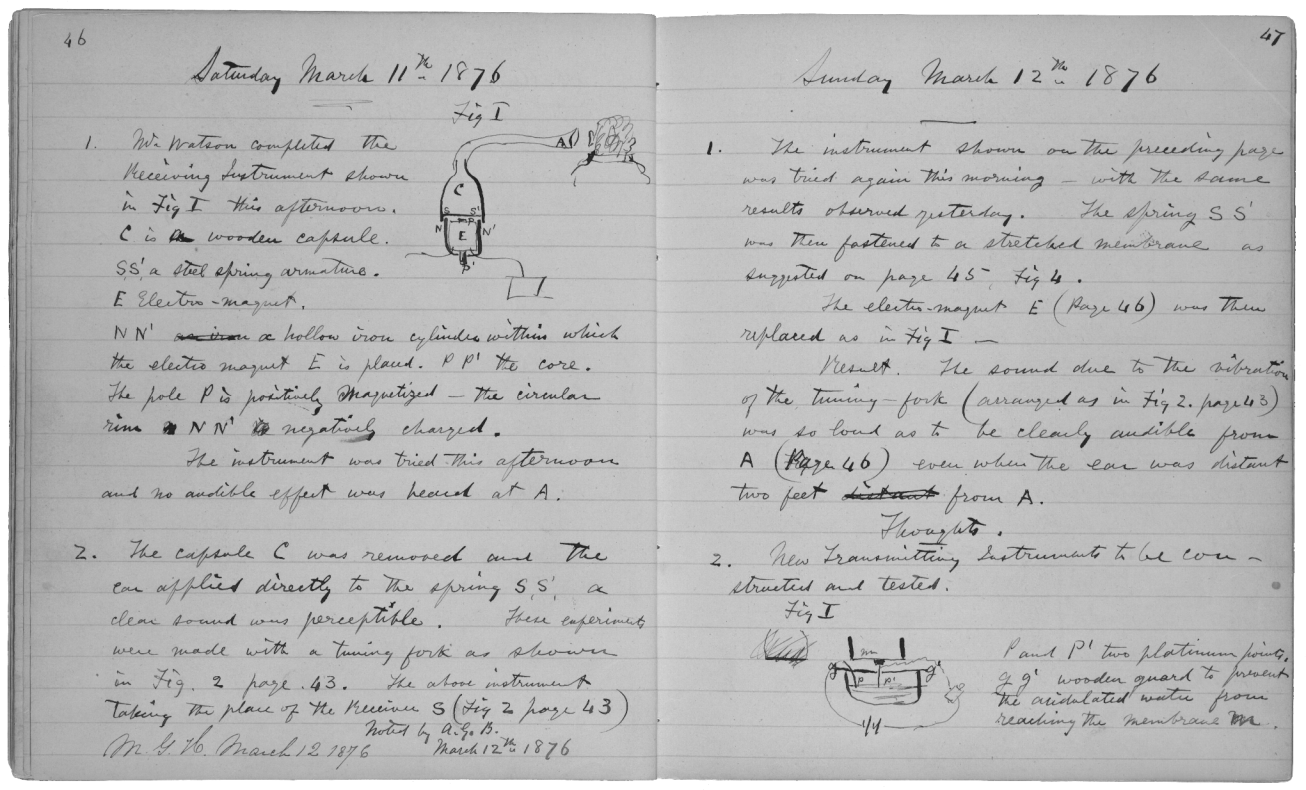 46
Saturday March 11th 1876
Fig I
1. Mr Watson completed the
Receiving Instrument shown
in Fig I this afternoon.
C is a wooden capsule.
SS' a steel spring armature.
E Electro-magnet.
NN' a hollow iron cylinder within which
the electro magnet E is placed. P P' the core.
The pole P is positively magnetized — the circular
rim NN' negatively charged.
The instrument was tried this afternoon
and no audible effect was heard at A.
2. The capsule C was removed and the
ear applied directly to the spring S,S', a
clear sound was perceptible. These experiments
were made with a tuning fork as shown
in Fig. 2 page 43. The above instrument
taking the place of the Receiver S (Fig 2 page 43)
Noted by A.G.B.
M. G. H. March 12 1876 March 12th 1876
A
C
S S'
P
N E N'
P'
47
Sunday March 12th 1876
1. The instrument shown on the preceding page
was tried again this morning — with the same
results observed yesterday. The spring S S'
was then fastened to a stretched membrane as
suggested on page 45, Fig 4.
The electro-magnet E (Page 46) was then
replaced as in Fig I —
Result. The sound due to the vibration
of the tuning-fork (arranged as in Fig 2. page 43)
was so loud as to be clearly audible from
A (Page 46) even when the ear was distant
two feet distant from A.
Thoughts.
2. New Transmitting Instruments to be con-
structed and tested.
Fig I
m
g P P' g'
P and P' two platinum points.
g g' wooden guard to prevent
the acidulated water from
reaching the membrane m.